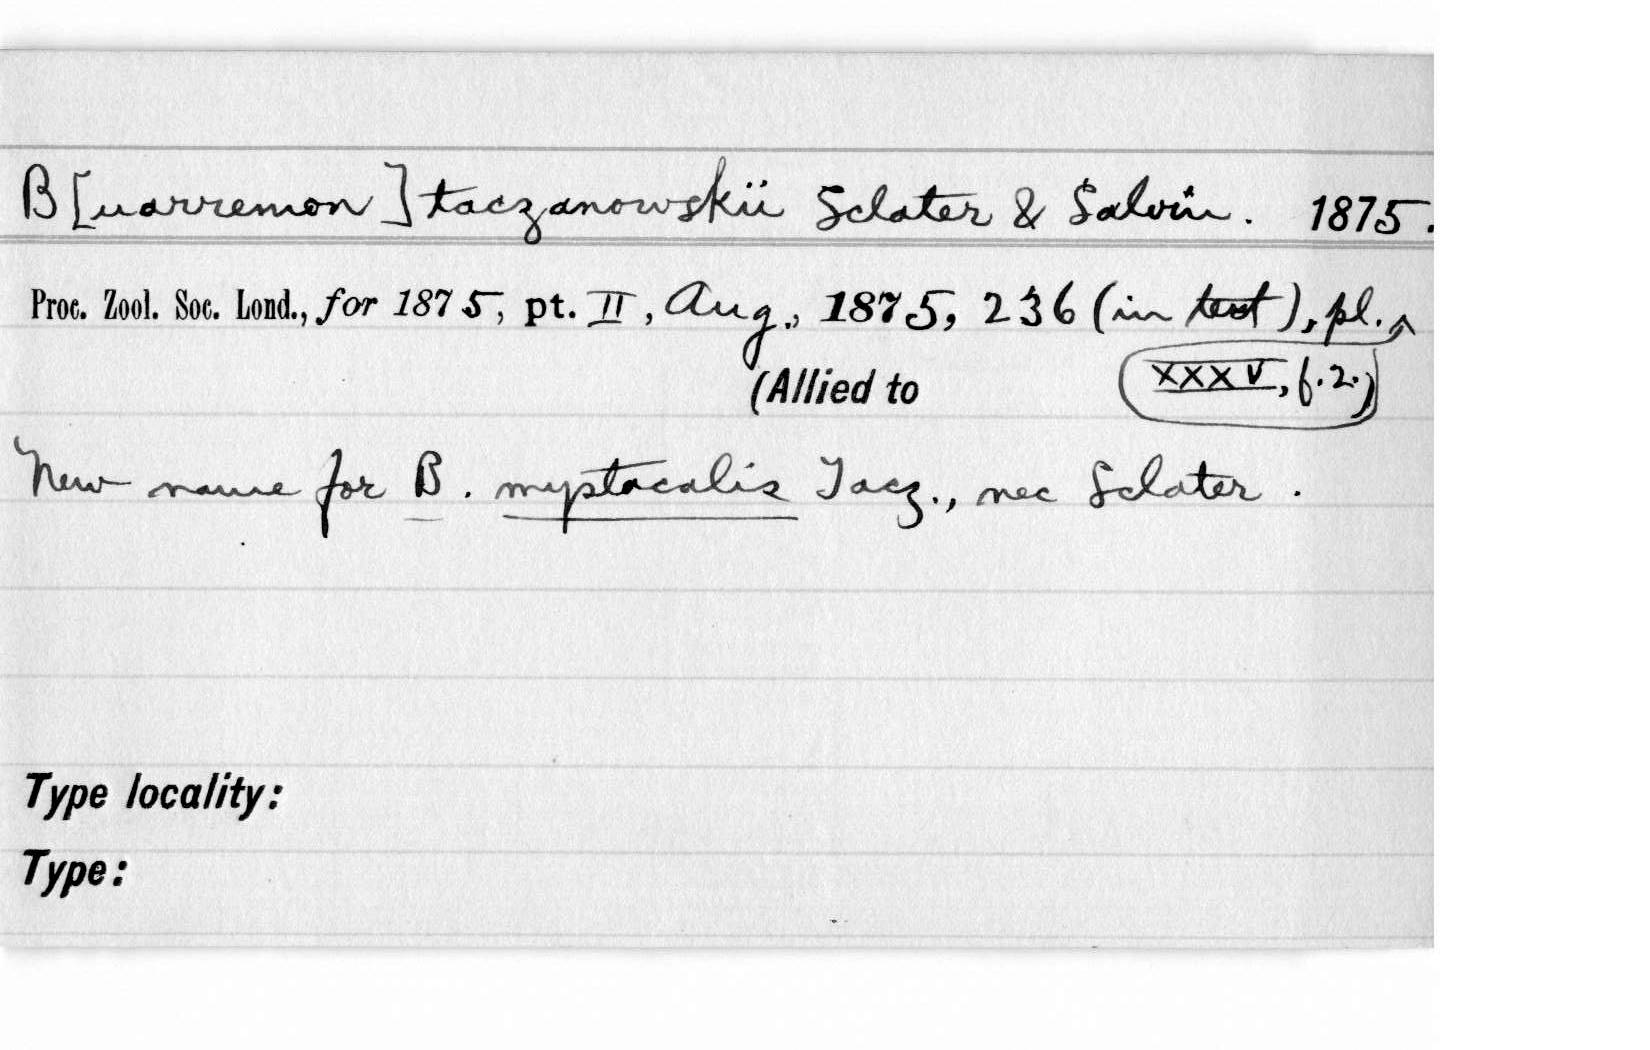 B[uarremon] taczanowskii Sclater & Salvin. 1875.
Proc. Zool. Soc. Lond., for 1875, pt. II, Aug., 1875, 236 (in text), pl. ^
(Allied to XXXV, f.2.)
New name for B. mystacalis Tacz., nec Sclater.
Type locality:
Type: